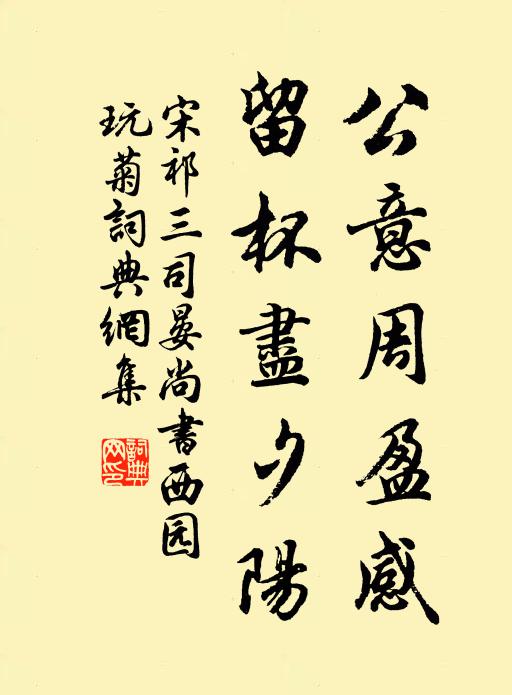 公意周盈感
留杯盡夕陽
宋祁三司晏尚書西园
玩菊詞典網集
詞典网印